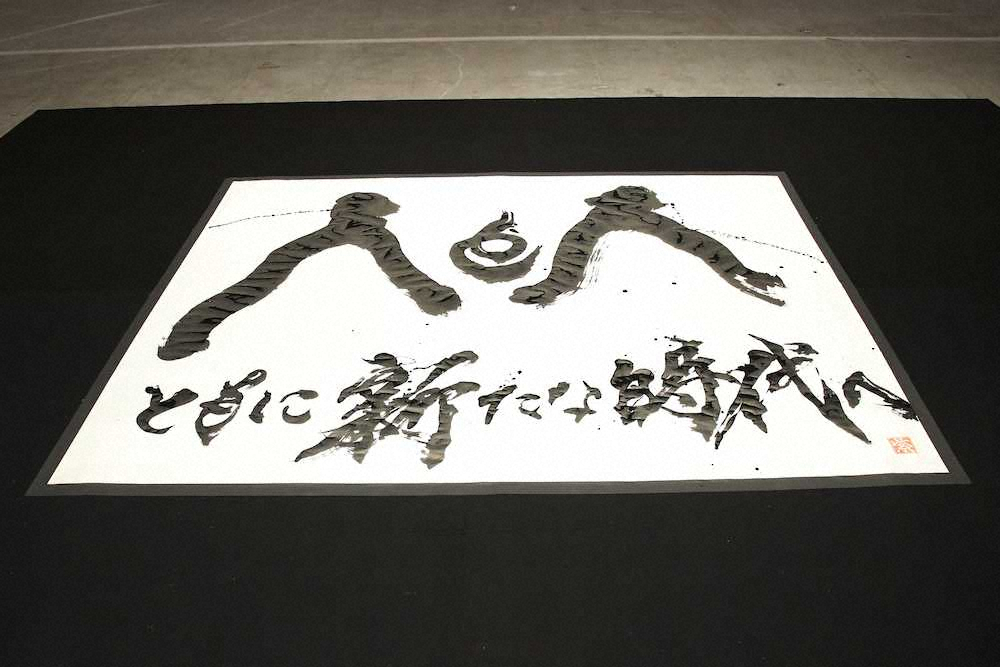 人 人
ともに新たな時代へ